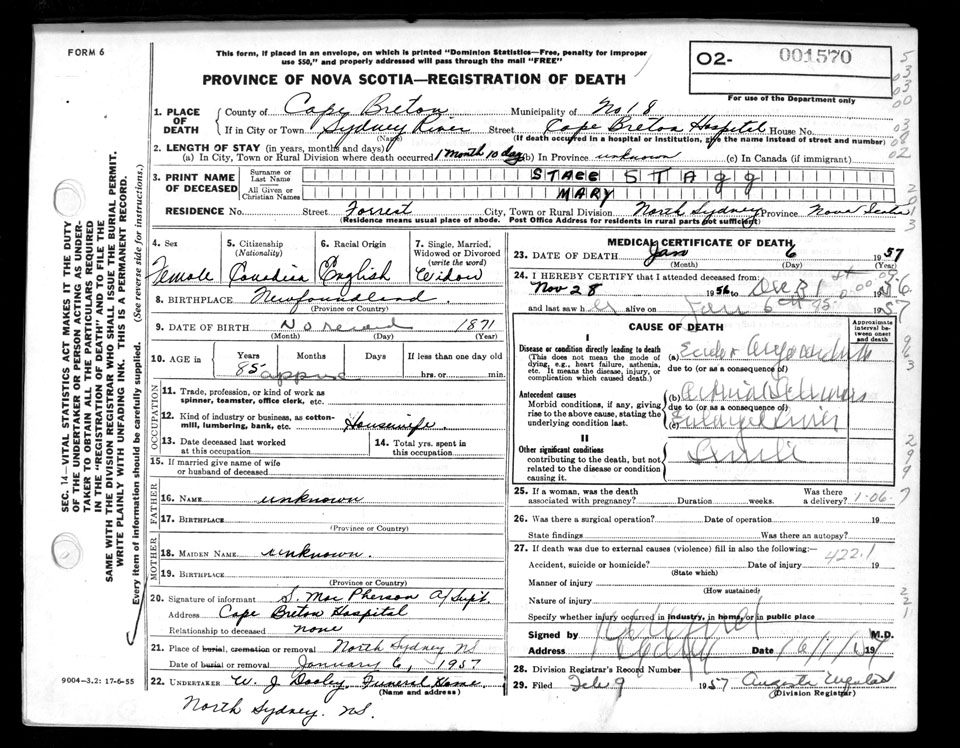 FORM 6
This form, if placed in an envelope, on which is printed "Dominion Statistics—Free, penalty for improper
use $50," and properly addressed will pass through the mail "FREE"
PROVINCE OF NOVA SCOTIA—REGISTRATION OF DEATH
02- 001570
For use of the Department only
1. PLACE OF DEATH
County of Cape Breton Municipality of No 18
If in City or Town Sydney River Street Cape Breton Hospital House No.
(Name) (If death occurred in a hospital or institution, give the name instead of street and number)
2. LENGTH OF STAY (in years, months and days)
(a) In City, Town or Rural Division where death occurred 1 month 10 days (b) In Province unknown (c) In Canada (if immigrant)
3. PRINT NAME OF DECEASED
Surname or Last Name STACC STAgg
All Given or Christian Names MARY
RESIDENCE No. Street Forrest City, Town or Rural Division North Sydney Province Nova Scotia
(Residence means usual place of abode. Post Office Address for residents in rural parts not sufficient)
4. Sex Female
5. Citizenship (Nationality) Canadian
6. Racial Origin English
7. Single, Married, Widowed or Divorced (write the word) Widow
8. BIRTHPLACE Newfoundland
(Province or Country)
9. DATE OF BIRTH No record 1871
(Month) (Day) (Year)
10. AGE in Years Months Days If less than one day old
85 approx hrs. or min.
OCCUPATION
11. Trade, profession, or kind of work as spinner, teamster, office clerk, etc.
12. Kind of industry or business, as cotton-mill, lumbering, bank, etc. Housewife
13. Date deceased last worked at this occupation
14. Total yrs. spent in this occupation
15. If married give name of wife or husband of deceased
FATHER
16. NAME unknown
17. BIRTHPLACE
(Province or Country)
MOTHER
18. MAIDEN NAME unknown.
19. BIRTHPLACE
(Province or Country)
20. Signature of informant S. MacPherson A/Supt.
Address Cape Breton Hospital
Relationship to deceased none
21. Place of burial, cremation or removal North Sydney NS
Date of burial or removal January 6, 1957
22. UNDERTAKER W. J. Dooley Funeral Home
(Name and address)
North Sydney. NS.
9004-3.2: 17-6-55
SEC. 14—VITAL STATISTICS ACT MAKES IT THE DUTY
OF THE UNDERTAKER OR PERSON ACTING AS UNDER-
TAKER TO OBTAIN ALL THE PARTICULARS REQUIRED
IN THE "REGISTRATION OF DEATH" AND TO FILE THE
SAME WITH THE DIVISION REGISTRAR WHO SHALL ISSUE THE BURIAL PERMIT.
WRITE PLAINLY WITH UNFADING INK. THIS IS A PERMANENT RECORD.
Every item of information should be carefully supplied. (See reverse side for instructions.)
MEDICAL CERTIFICATE OF DEATH
23. DATE OF DEATH Jan 6 1957
(Month) (Day) (Year)
24. I HEREBY CERTIFY that I attended deceased from:
Nov 28 1956 to Dec 31st 1956
and last saw her alive on Jan 6th 1957
CAUSE OF DEATH
Approximate interval between onset and death
I
Disease or condition directly leading to death
(This does not mean the mode of dying, e.g., heart failure, asthenia, etc. It means the disease, injury, or complication which caused death.)
(a)
due to (or as a consequence of)
Antecedent causes
Morbid conditions, if any, giving rise to the above cause, stating the underlying condition last.
(b)
due to (or as a consequence of)
(c)
II
Other significant conditions
contributing to the death, but not related to the disease or condition causing it.
25. If a woman, was the death associated with pregnancy? Duration weeks. Was there a delivery? 1-06.7
26. Was there a surgical operation? Date of operation 19
State findings Was there an autopsy?
27. If death was due to external causes (violence) fill in also the following:
422.1
Accident, suicide or homicide? Date of injury 19
(State which)
Manner of injury
(How sustained)
Nature of injury
Specify whether injury occurred in industry, in home, or in public place
Signed by M.D.
Address Date 19
28. Division Registrar's Record Number
29. Filed Feb 9 1957
(Division Registrar)